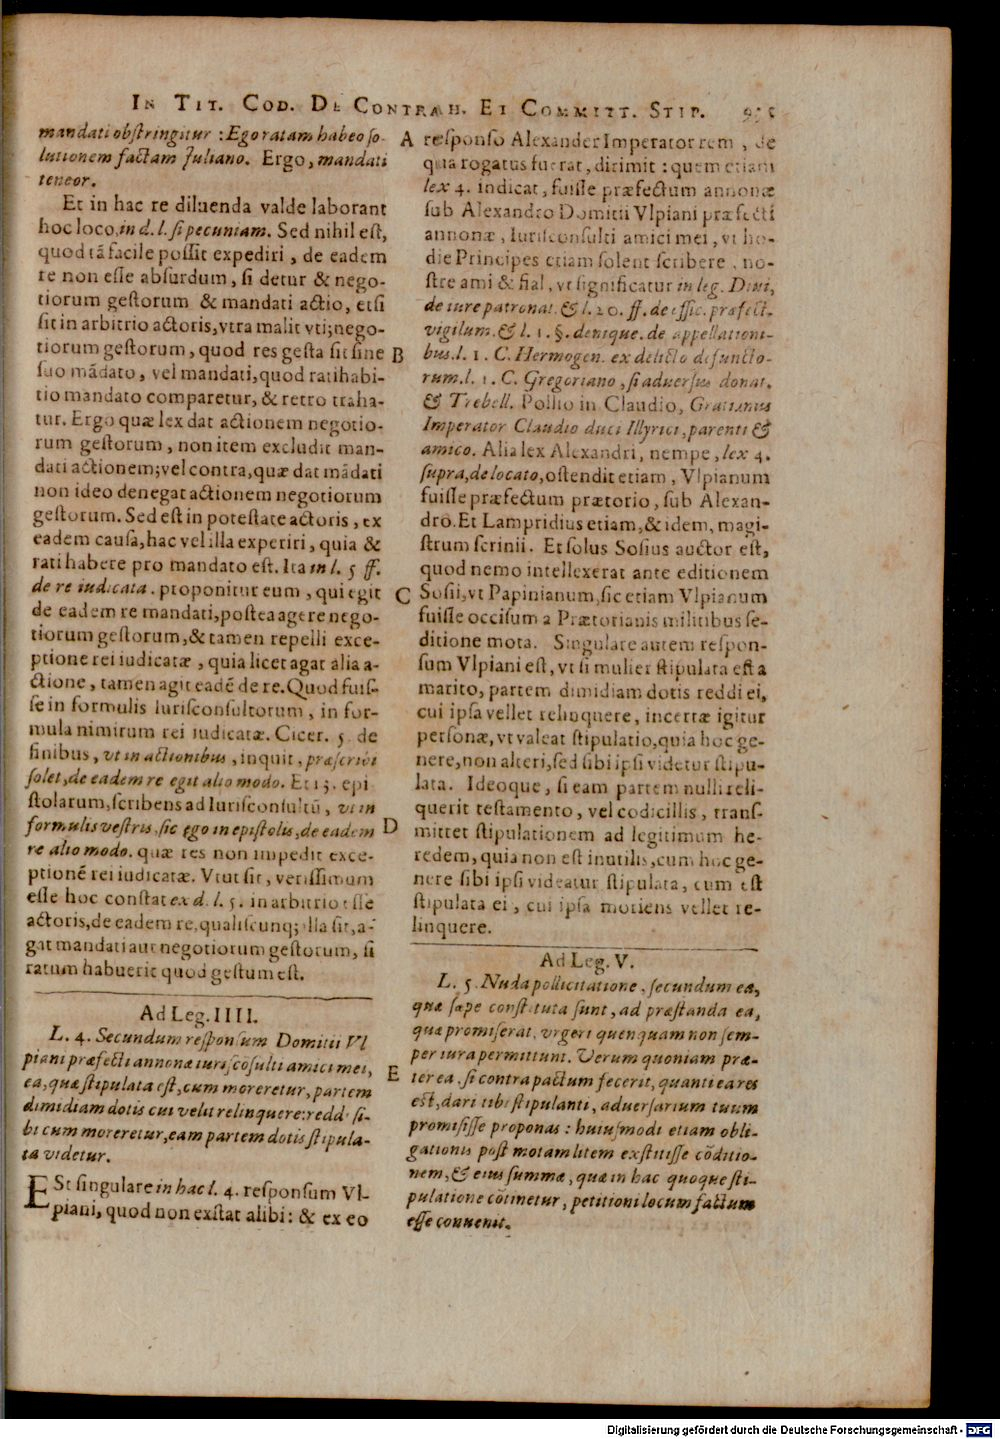 IN TIT. COD. DE CONTRAH. ET COMMITT. STIP.
mandati obſtringitur : Ego ratam habeo ſo-
lutionem factam Juliano. Ergo, mandati
teneor.
Et in hac re diluenda valde laborant
hoc loco, in d. l. ſi pecuniam. Sed nihil eſt,
quod tã facile poſſit expediri, de eadem
re non eſſe abſurdum, ſi detur & nego-
tiorum geſtorum & mandati actio, etſi
ſit in arbitrio actoris, vtra malit vti; nego-
tiorum geſtorum, quod res geſta ſit ſine
ſuo mãdato, vel mandati, quod ratihabi-
tio mandato comparetur, & retro traha-
tur. Ergo quæ lex dat actionem negotio-
rum geſtorum, non item excludit man-
dati actionem; vel contra, quæ dat mãdati
non ideo denegat actionem negotiorum
geſtorum. Sed eſt in poteſtate actoris, ex
eadem cauſa, hac vel illa experiri, quia &
rati habere pro mandato eſt. Ita in l. 5 ff.
de re iudicata. proponitur eum, qui egit
de eadem re mandati, poſtea agere nego-
tiorum geſtorum, & tamen repelli exce-
ptione rei iudicatæ, quia licet agat alia a-
ctione, tamen agit eadẽ de re. Quod fuiſ-
ſe in formulis Iuriſconſultorum, in for-
mula nimirum rei iudicatæ. Cicer. 5. de
finibus, vt in actionibus, inquit, præſcribi
ſolet, de eadem re egit alio modo. Et 13. epi
ſtolarum, ſcribens ad Iuriſconſultũ, vt in
formulis veſtris, ſic ego in epiſtolis, de eadem
re alio modo. quæ res non impedit exce-
ptionẽ rei iudicatæ. Vtut ſit, veriſſimum
eſſe hoc conſtat ex d. l. 5. in arbitrio eſſe
actoris, de eadem re, qualiſcunq; illa ſit, a-
gat mandati aut negotiorum geſtorum, ſi
ratum habuerit quod geſtum eſt.
Ad Leg. IIII.
L. 4. Secundum reſponſum Domitii Vl
piani præfecti annonæ iuriſcõſulti amici mei,
ea, quæ ſtipulata eſt, cum moreretur, partem
dimidiam dotis cui velit relinquere: reddi ſi-
bi cum moreretur, eam partem dotis ſtipula-
ta videtur.
ESt ſingulare in hac l. 4. reſponſum Vl-
piani, quod non exſtat alibi: & ex eo
A
B
C
D
E
reſponſo Alexander Imperator rem, de
qua rogatus fuerat, dirimit : quem etiam
lex 4. indicat, fuiſſe præfectum annonæ
ſub Alexandro Domitii Vlpiani præfecti
annonæ, Iuriſconſulti amici mei, vt ho-
die Principes etiam ſolent ſcribere, no-
ſtre ami & fial, vt ſignificatur in leg. Diui,
de iure patronat. & l. 20. ff. de offic. præfect.
vigilum. & l. 1. §. denique. de appellationi-
bus. l. 1. C. Hermogen. ex delicto defuncto-
rum. l. 1. C. Gregoriano, ſi aduerſus donat.
& Trebell. Pollio in Claudio, Gratianus
Imperator Claudio duci Illyrici, parenti &
amico. Alia lex Alexandri, nempe, lex 4.
ſupra, de locato, oſtendit etiam, Vlpianum
fuiſſe præfectum prætorio, ſub Alexan-
dro. Et Lampridius etiam, & idem, magi-
ſtrum ſcrinii. Et ſolus Soſius auctor eſt,
quod nemo intellexerat ante editionem
Soſii, vt Papinianum, ſic etiam Vlpianum
fuiſſe occiſum a Prætorianis militibus ſe-
ditione mota. Singulare autem reſpon-
ſum Vlpiani eſt, vt ſi mulier ſtipulata eſt a
marito, partem dimidiam dotis reddi ei,
cui ipſa vellet relinquere, incertæ igitur
perſonæ, vt valeat ſtipulatio, quia hoc ge-
nere, non alteri, ſed ſibi ipſi videtur ſtipu-
lata. Ideoque, ſi eam partem nulli reli-
querit teſtamento, vel codicillis, tranſ-
mittet ſtipulationem ad legitimum he-
redem, quia non eſt inutilis, cum hoc ge-
nere ſibi ipſi videatur ſtipulata, cum eſt
ſtipulata ei, cui ipſa moriens vellet re-
linquere.
Ad Leg. V.
L. 5. Nuda pollicitatione, ſecundum ea,
quæ ſæpe conſtituta ſunt, ad præſtanda ea,
quæ promiſerat, vrgeri quenquam non ſem-
per iura permittunt. Verum quoniam præ-
terea, ſi contra pactum fecerit, quanti ea res
eſt, dari tibi ſtipulanti, aduerſarium tuum
promiſiſſe proponas : huiuſmodi etiam obli-
gationis poſt motam litem exſtitiſſe cõditio-
nem, & eius ſummæ, quæ in hac quoque ſti-
pulatione cõtinetur, petitioni locum factum
eſſe conuenit.
Digitalisierung gefördert durch die Deutsche Forschungsgemeinschaft - DFG